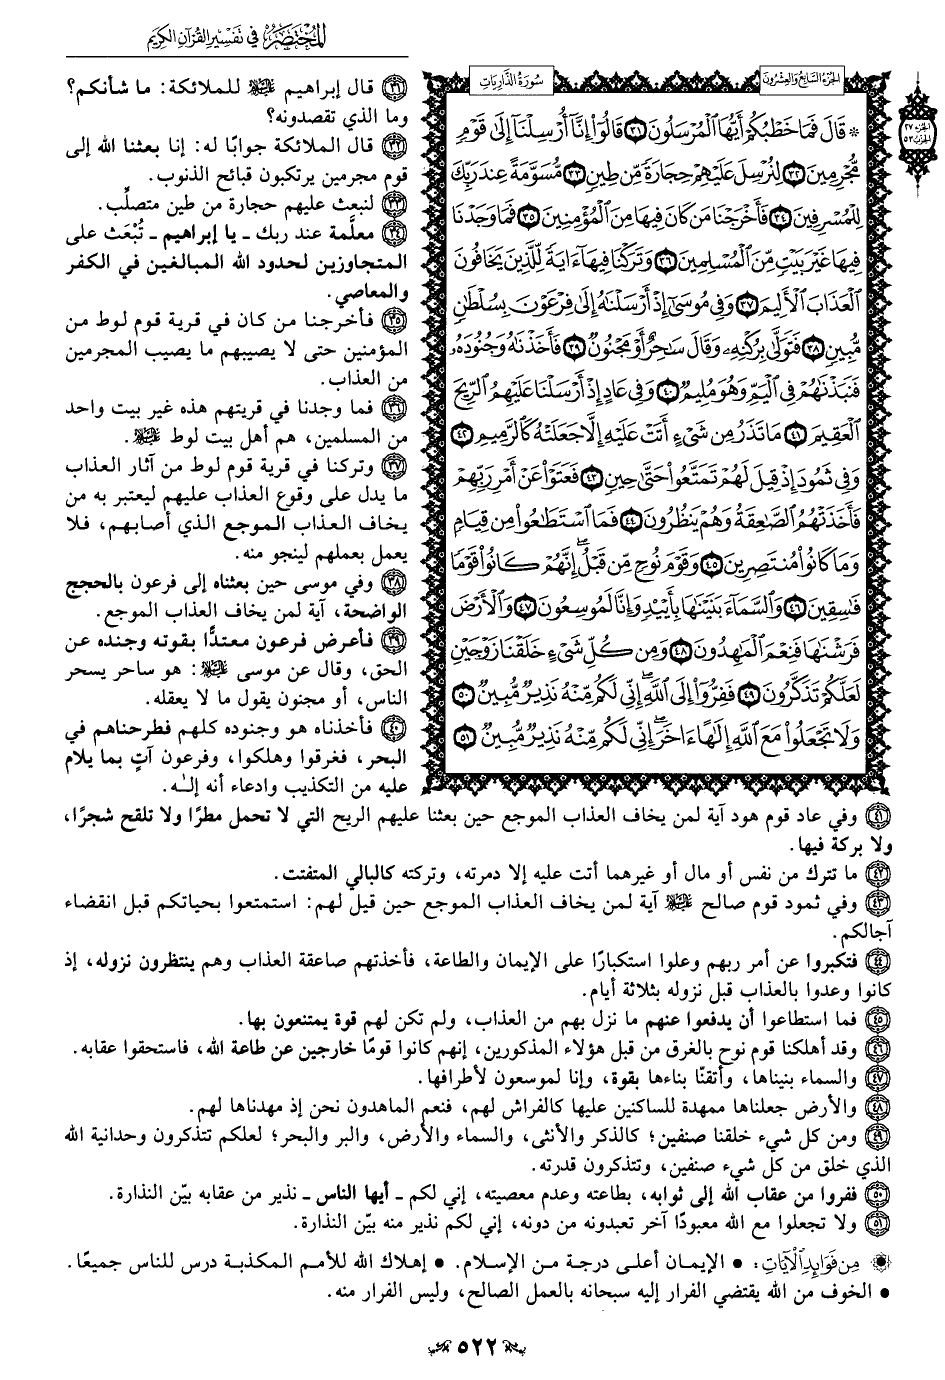 المختصر في تفسير القرآن الكريم
الجزء السابع والعشرون
سورة الذاريات
الجزء ٢٧
الحزب ٥٣
* قَالَ فَمَا خَطْبُكُمْ أَيُّهَا ٱلْمُرْسَلُونَ ٣١ قَالُوٓا۟ إِنَّآ أُرْسِلْنَآ إِلَىٰ قَوْمٍ
مُّجْرِمِينَ ٣٢ لِنُرْسِلَ عَلَيْهِمْ حِجَارَةً مِّن طِينٍ ٣٣ مُّسَوَّمَةً عِندَ رَبِّكَ
لِلْمُسْرِفِينَ ٣٤ فَأَخْرَجْنَا مَن كَانَ فِيهَا مِنَ ٱلْمُؤْمِنِينَ ٣٥ فَمَا وَجَدْنَا
فِيهَا غَيْرَ بَيْتٍ مِّنَ ٱلْمُسْلِمِينَ ٣٦ وَتَرَكْنَا فِيهَآ ءَايَةً لِّلَّذِينَ يَخَافُونَ
ٱلْعَذَابَ ٱلْأَلِيمَ ٣٧ وَفِى مُوسَىٰٓ إِذْ أَرْسَلْنَٰهُ إِلَىٰ فِرْعَوْنَ بِسُلْطَٰنٍ
مُّبِينٍ ٣٨ فَتَوَلَّىٰ بِرُكْنِهِۦ وَقَالَ سَٰحِرٌ أَوْ مَجْنُونٌ ٣٩ فَأَخَذْنَٰهُ وَجُنُودَهُۥ
فَنَبَذْنَٰهُمْ فِى ٱلْيَمِّ وَهُوَ مُلِيمٌ ٤٠ وَفِى عَادٍ إِذْ أَرْسَلْنَا عَلَيْهِمُ ٱلرِّيحَ
ٱلْعَقِيمَ ٤١ مَا تَذَرُ مِن شَىْءٍ أَتَتْ عَلَيْهِ إِلَّا جَعَلَتْهُ كَٱلرَّمِيمِ ٤٢
وَفِى ثَمُودَ إِذْ قِيلَ لَهُمْ تَمَتَّعُوا۟ حَتَّىٰ حِينٍ ٤٣ فَعَتَوْا۟ عَنْ أَمْرِ رَبِّهِمْ
فَأَخَذَتْهُمُ ٱلصَّٰعِقَةُ وَهُمْ يَنظُرُونَ ٤٤ فَمَا ٱسْتَطَٰعُوا۟ مِن قِيَامٍ
وَمَا كَانُوا۟ مُنتَصِرِينَ ٤٥ وَقَوْمَ نُوحٍ مِّن قَبْلُ ۖ إِنَّهُمْ كَانُوا۟ قَوْمًا
فَٰسِقِينَ ٤٦ وَٱلسَّمَآءَ بَنَيْنَٰهَا بِأَيْي۟دٍ وَإِنَّا لَمُوسِعُونَ ٤٧ وَٱلْأَرْضَ
فَرَشْنَٰهَا فَنِعْمَ ٱلْمَٰهِدُونَ ٤٨ وَمِن كُلِّ شَىْءٍ خَلَقْنَا زَوْجَيْنِ
لَعَلَّكُمْ تَذَكَّرُونَ ٤٩ فَفِرُّوٓا۟ إِلَى ٱللَّهِ ۖ إِنِّى لَكُم مِّنْهُ نَذِيرٌ مُّبِينٌ ٥٠
وَلَا تَجْعَلُوا۟ مَعَ ٱللَّهِ إِلَٰهًا ءَاخَرَ ۖ إِنِّى لَكُم مِّنْهُ نَذِيرٌ مُّبِينٌ ٥١
٣١ قال إبراهيم ﷺ للملائكة: ما شأنكم؟
وما الذي تقصدونه؟
٣٢ قال الملائكة جوابًا له: إنا بعثنا الله إلى
قوم مجرمين يرتكبون قبائح الذنوب.
٣٣ لنبعث عليهم حجارة من طين متصلِّب.
٣٤ معلَّمة عند ربك ـ يا إبراهيم ـ تُبْعَث على
المتجاوزين لحدود الله المبالغين في الكفر
والمعاصي.
٣٥ فأخرجنا من كان في قرية قوم لوط من
المؤمنين حتى لا يصيبهم ما يصيب المجرمين
من العذاب.
٣٦ فما وجدنا في قريتهم هذه غير بيت واحد
من المسلمين، هم أهل بيت لوط ﷺ.
٣٧ وتركنا في قرية قوم لوط من آثار العذاب
ما يدل على وقوع العذاب عليهم ليعتبر به من
يخاف العذاب الموجع الذي أصابهم، فلا
يعمل بعملهم لينجو منه.
٣٨ وفي موسى حين بعثناه إلى فرعون بالحجج
الواضحة، آية لمن يخاف العذاب الموجع.
٣٩ فأعرض فرعون معتدًّا بقوته وجنده عن
الحق، وقال عن موسى ﷺ: هو ساحر يسحر
الناس، أو مجنون يقول ما لا يعقله.
٤٠ فأخذناه هو وجنوده كلهم فطرحناهم في
البحر، فغرقوا وهلكوا، وفرعون آتٍ بما يلام
عليه من التكذيب وادعاء أنه إلـٰه.
٤١ وفي عاد قوم هود آية لمن يخاف العذاب الموجع حين بعثنا عليهم الريح التي لا تحمل مطرًا ولا تلقح شجرًا،
ولا بركة فيها.
٤٢ ما تترك من نفس أو مال أو غيرهما أتت عليه إلا دمرته، وتركته كالبالي المتفتت.
٤٣ وفي ثمود قوم صالح ﷺ آية لمن يخاف العذاب الموجع حين قيل لهم: استمتعوا بحياتكم قبل انقضاء
آجالكم.
٤٤ فتكبروا عن أمر ربهم وعلوا استكبارًا على الإيمان والطاعة، فأخذتهم صاعقة العذاب وهم ينتظرون نزوله، إذ
كانوا وعدوا بالعذاب قبل نزوله بثلاثة أيام.
٤٥ فما استطاعوا أن يدفعوا عنهم ما نزل بهم من العذاب، ولم تكن لهم قوة يمتنعون بها.
٤٦ وقد أهلكنا قوم نوح بالغرق من قبل هؤلاء المذكورين، إنهم كانوا قومًا خارجين عن طاعة الله، فاستحقوا عقابه.
٤٧ والسماء بنيناها، وأتقنّا بناءها بقوة، وإنا لموسعون لأطرافها.
٤٨ والأرض جعلناها ممهدة للساكنين عليها كالفراش لهم، فنعم الماهدون نحن إذ مهدناها لهم.
٤٩ ومن كل شيء خلقنا صنفين؛ كالذكر والأنثى، والسماء والأرض، والبر والبحر؛ لعلكم تتذكرون وحدانية الله
الذي خلق من كل شيء صنفين، وتتذكرون قدرته.
٥٠ ففروا من عقاب الله إلى ثوابه، بطاعته وعدم معصيته، إني لكم ـ أيها الناس ـ نذير من عقابه بيّن النذارة.
٥١ ولا تجعلوا مع الله معبودًا آخر تعبدونه من دونه، إني لكم نذير منه بيّن النذارة.
من فوائد الآيات: • الإيمان أعلى درجة من الإسلام. • إهلاك الله للأمم المكذبة درس للناس جميعًا.
• الخوف من الله يقتضي الفرار إليه سبحانه بالعمل الصالح، وليس الفرار منه.
٥٢٢